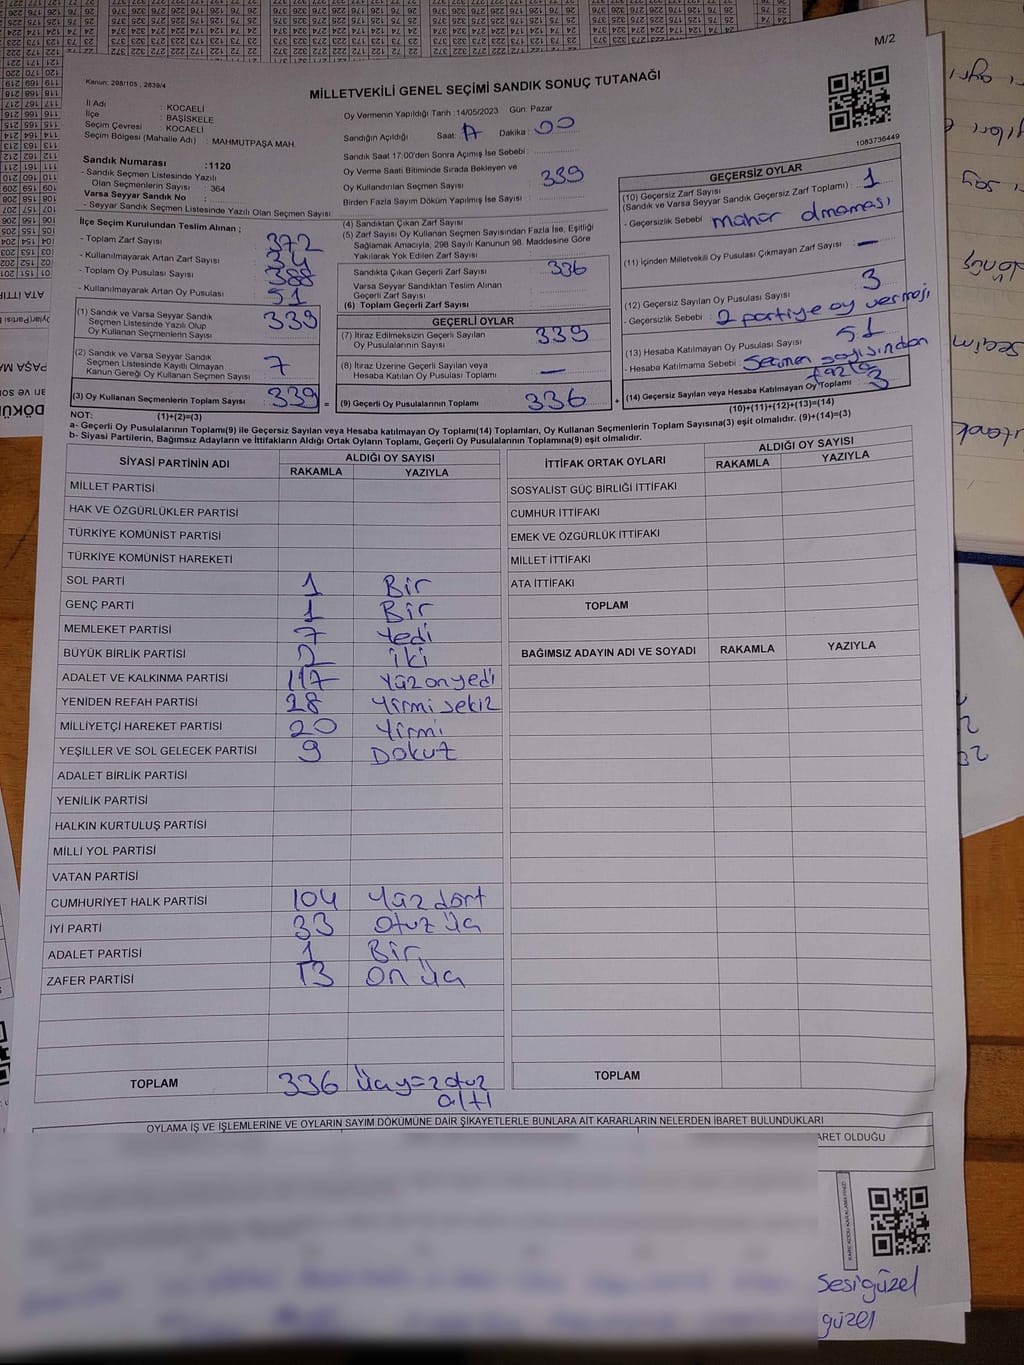 M/2
Kanun: 298/105 , 2839/4
MİLLETVEKİLİ GENEL SEÇİMİ SANDIK SONUÇ TUTANAĞI
İl Adı : KOCAELİ
İlçe : BAŞİSKELE
Seçim Çevresi : KOCAELİ
Seçim Bölgesi (Mahalle Adı) : MAHMUTPAŞA MAH.
Sandık Numarası :1120
- Sandık Seçmen Listesinde Yazılı
Olan Seçmenlerin Sayısı : 364
Varsa Seyyar Sandık No :
- Seyyar Sandık Seçmen Listesinde Yazılı Olan Seçmen Sayısı:
Oy Vermenin Yapıldığı Tarih :14/05/2023 Gün: Pazar
Sandığın Açıldığı Saat: 17 Dakika : 00
Sandık Saat 17:00'den Sonra Açımış İse Sebebi :
Oy Verme Saati Bitiminde Sırada Bekleyen ve
Oy Kullandırılan Seçmen Sayısı 339
Birden Fazla Sayım Döküm Yapılmış İse Sayısı :
1083736449
İlçe Seçim Kurulundan Teslim Alınan ;
- Toplam Zarf Sayısı : 372
- Kullanılmayarak Artan Zarf Sayısı :
- Toplam Oy Pusulası Sayısı : 388
- Kullanılmayarak Artan Oy Pusulası : 51
(1) Sandık ve Varsa Seyyar Sandık
Seçmen Listesinde Yazılı Olup
Oy Kullanan Seçmenlerin Sayısı 339
(2) Sandık ve Varsa Seyyar Sandık
Seçmen Listesinde Kayıtlı Olmayan
Kanun Gereği Oy Kullanan Seçmen Sayısı 7
(3) Oy Kullanan Seçmenlerin Toplam Sayısı 339 =
(4) Sandıktan Çıkan Zarf Sayısı
(5) Zarf Sayısı Oy Kullanan Seçmen Sayısından Fazla İse, Eşitliği
Sağlamak Amacıyla, 298 Sayılı Kanunun 98. Maddesine Göre
Yakılarak Yok Edilen Zarf Sayısı :
Sandıkta Çıkan Geçerli Zarf Sayısı 336
Varsa Seyyar Sandıktan Teslim Alınan
Geçerli Zarf Sayısı :
(6) Toplam Geçerli Zarf Sayısı
GEÇERLİ OYLAR
(7) İtiraz Edilmeksizin Geçerli Sayılan
Oy Pusulalarının Sayısı 339
(8) İtiraz Üzerine Geçerli Sayılan veya
Hesaba Katılan Oy Pusulası Toplamı —
(9) Geçerli Oy Pusulalarının Toplamı 336 +
GEÇERSİZ OYLAR
(10) Geçersiz Zarf Sayısı
(Sandık ve Varsa Seyyar Sandık Geçersiz Zarf Toplamı) : 1
- Geçersizlik Sebebi : mühür olmaması
(11) İçinden Milletvekili Oy Pusulası Çıkmayan Zarf Sayısı : —
(12) Geçersiz Sayılan Oy Pusulası Sayısı : 3
- Geçersizlik Sebebi : 2 partiye oy vermesi
(13) Hesaba Katılmayan Oy Pusulası Sayısı : 51
- Hesaba Katılmama Sebebi : Seçmen sayısından
fazla
(14) Geçersiz Sayılan veya Hesaba Katılmayan Oy Toplamı 3
NOT: (1)+(2)=(3)
(10)+(11)+(12)+(13)=(14)
a- Geçerli Oy Pusulalarının Toplamı(9) ile Geçersiz Sayılan veya Hesaba katılmayan Oy Toplamı(14) Toplamları, Oy Kullanan Seçmenlerin Toplam Sayısına(3) eşit olmalıdır. (9)+(14)=(3)
b- Siyasi Partilerin, Bağımsız Adayların ve İttifakların Aldığı Ortak Oyların Toplamı, Geçerli Oy Pusulalarının Toplamına(9) eşit olmalıdır.
SİYASİ PARTİNİN ADI ALDIĞI OY SAYISI
RAKAMLA YAZIYLA
MİLLET PARTİSİ
HAK VE ÖZGÜRLÜKLER PARTİSİ
TÜRKİYE KOMÜNİST PARTİSİ
TÜRKİYE KOMÜNİST HAREKETİ
SOL PARTİ 1 Bir
GENÇ PARTİ 1 Bir
MEMLEKET PARTİSİ 7 Yedi
BÜYÜK BİRLİK PARTİSİ 2 iki
ADALET VE KALKINMA PARTİSİ 117 Yüzonyedi
YENİDEN REFAH PARTİSİ 28 Yirmi sekiz
MİLLİYETÇİ HAREKET PARTİSİ 20 Yirmi
YEŞİLLER VE SOL GELECEK PARTİSİ 9 Dokuz
ADALET BİRLİK PARTİSİ
YENİLİK PARTİSİ
HALKIN KURTULUŞ PARTİSİ
MİLLİ YOL PARTİSİ
VATAN PARTİSİ
CUMHURİYET HALK PARTİSİ 104 Yüz dört
İYİ PARTİ 33 otuz üç
ADALET PARTİSİ 1 Bir
ZAFER PARTİSİ 13 on üç
TOPLAM 336 üçyüzotuz
altı
İTTİFAK ORTAK OYLARI ALDIĞI OY SAYISI
RAKAMLA YAZIYLA
SOSYALİST GÜÇ BİRLİĞİ İTTİFAKI
CUMHUR İTTİFAKI
EMEK VE ÖZGÜRLÜK İTTİFAKI
MİLLET İTTİFAKI
ATA İTTİFAKI
TOPLAM
BAĞIMSIZ ADAYIN ADI VE SOYADI RAKAMLA YAZIYLA
TOPLAM
OYLAMA İŞ VE İŞLEMLERİNE VE OYLARIN SAYIM DÖKÜMÜNE DAİR ŞİKAYETLERLE BUNLARA AİT KARARLARIN NELERDEN İBARET BULUNDUKLARI
ARET OLDUĞU
Sesigüzel
güzel